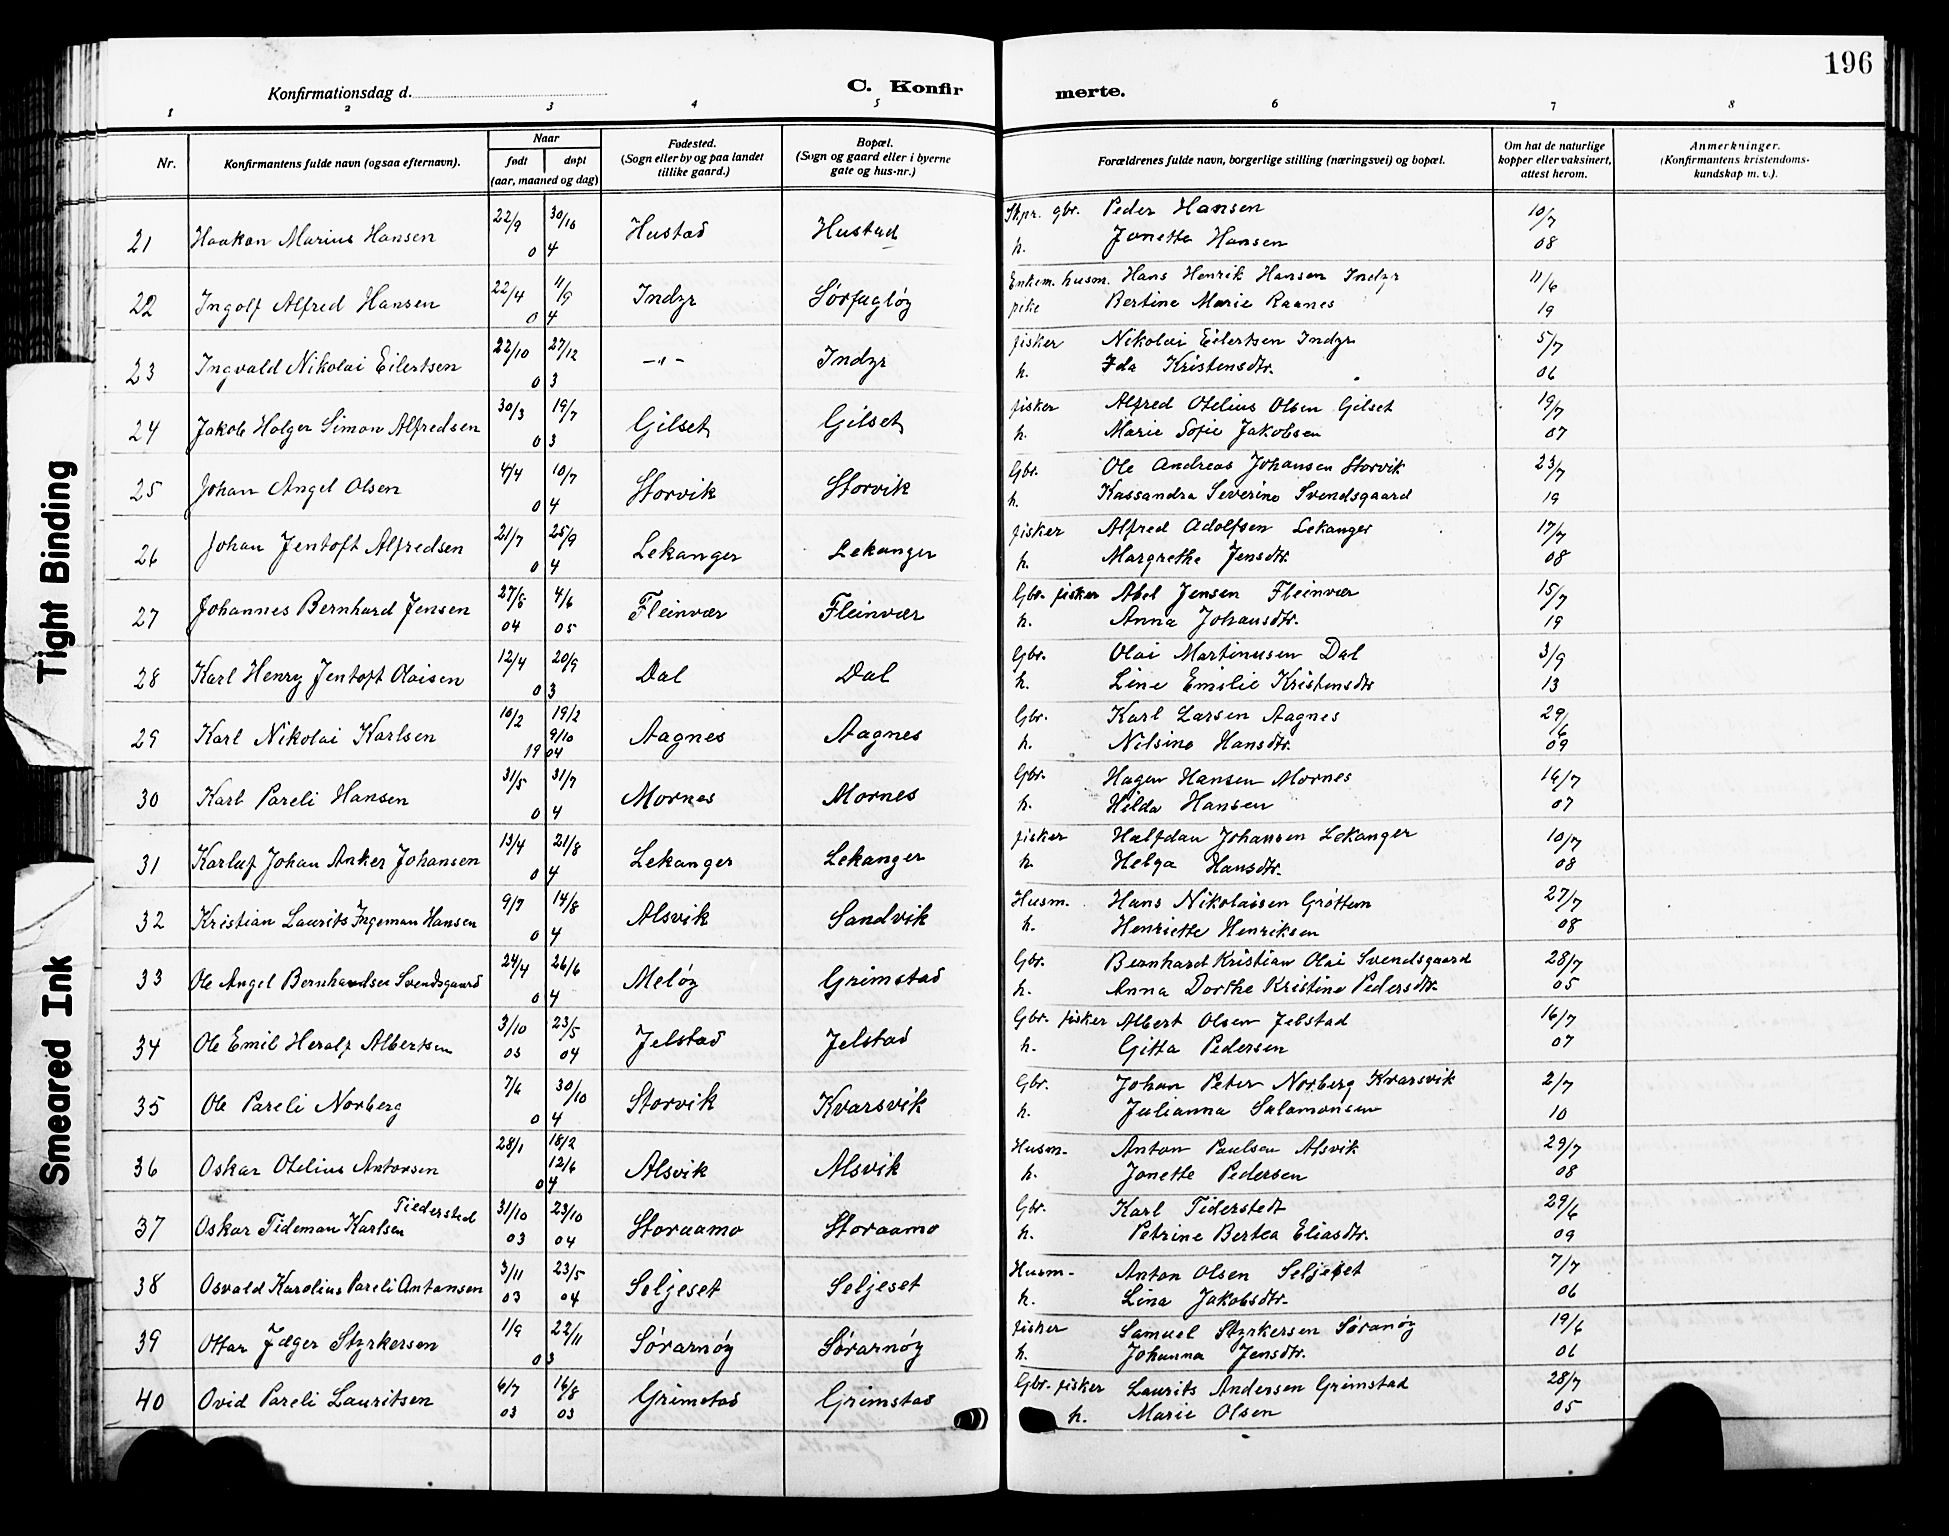 196
Konfirmationsdag d.
C. Konfirmerte.
1 2 3 4 5 6 7 8
Nr.
Konfirmantens fulde navn (ogsaa efternavn).
Naar
født
døpt
(aar, maaned og dag)
Fødested.
(Sogn eller by og paa landet
tillike gaard.)
Bopæl.
(Sogn og gaard eller i byerne
gate og hus-nr.)
Forældrenes fulde navn, borgerlige stilling (næringsvei) og bopæl.
Om hat de naturlige
kopper eller vaksinert,
attest herom.
Anmerkninger.
(Konfirmantens kristendoms-
kundskap m. v.).
21 Haakon Marius Hansen 22/9 30/10 04 Hustad Hustad Skpr. gbr. Peder Hansen 10/7
h. Jonetta Hansen 08
22 Ingolf Alfred Hansen 22/4 11/9 04 Indyr Sørfugløy Enkem. husm. Hans Henrik Hansen Indyr 11/6
pike Bertine Marie Raanes 19
23 Ingvald Nikolai Eilertsen 22/10 27/12 03 -"- Indyr fisker Nikolai Eilertsen Indyr 5/7
h. Ida Kristensdtr. 06
24 Jakob Holger Simon Alfredsen 30/3 19/7 03 Gilset Gilset fisker Alfred Otelius Olsen Gilset 19/7
h. Marie Sofie Jakobsen 07
25 Johan Angel Olsen 4/4 10/7 04 Storvik Storvik Gbr. Ole Andreas Johansen Storvik 23/7
h. Kassandra Severine Svendsgaard 19
26 Johan Jentoft Alfredsen 21/7 25/9 04 Lekanger Lekanger fisker Alfred Adolfsen Lekanger 17/7
h. Margrethe Jensdtr. 08
27 Johannes Bernhard Jensen 27/8 04 4/6 05 Fleinvær Fleinvær Gbr. fisker Abel Jensen Fleinvær 15/7
h. Anna Johansdtr. 19
28 Karl Henry Jentoft Olaisen 12/4 20/9 03 Dal Dal Gbr. Olai Martinusen Dal 3/9
h. Line Emilie Kristensdtr 13
29 Karl Nikolai Karlsen 10/2 19/2 9/10 1904 Aagnes Aagnes Gbr. Karl Larsen Aagnes 29/6
h. Nilsine Hansdtr. 09
30 Karl Pareli Hansen 31/5 31/7 04 Mornes Mornes Gbr. Hagen Hansen Mornes 16/7
h. Hilda Hansen 07
31 Karluf Johan Anker Johansen 13/4 21/8 04 Lekanger Lekanger fisker Halfdan Johansen Lekanger 10/7
h. Helga Hansdtr. 08
32 Kristian Laurits Ingeman Hansen 9/7 14/8 04 Alsvik Sandvik Husm. Hans Nikolaisen Grøttem 27/7
h. Henriette Henriksen 08
33 Ole Angel Bernhardsen Svendsgaard 24/4 26/6 04 Meløy Grimstad Gbr. Bernhard Kristian Olai Svendsgaard 28/7
h. Anna Dorthe Kristine Pedersdtr. 05
34 Ole Emil Heralf Albertsen 3/10 03 23/5 04 Jelstad Jelstad Gbr. fisker Albert Olsen Jelstad 16/7
h. Gitta Pedersen 07
35 Ole Pareli Norberg 7/6 30/10 04 Storvik Kvarsvik Gbr. Johan Peter Norberg Kvarsvik 2/7
h. Julianna Salamonsen 10
36 Oskar Otelius Antonsen 28/1 18/2 12/6 04 Alsvik Alsvik Husm. Anton Paulsen Alsvik 29/7
h. Jonette Pedersen 08
37 Oskar Tideman Karlsen Tiedersted 31/10 03 23/10 04 Storaamo Storaamo Gbr. Karl Tiderstedt 29/6
h. Petrine Bertea Eliasdtr. 09
38 Osvald Karolius Pareli Antonsen 3/11 03 23/5 04 Seljeset Seljeset Husm. Anton Olsen Seljeset 7/7
h. Lina Jakobsdtr. 06
39 Ottar Jæger Styrkersen 1/9 22/11 03 Sørarnøy Sørarnøy fisker Samuel Styrkersen Søranøy 19/6
h. Johanna Jensdtr. 06
40 Ovid Pareli Lauritsen 6/7 03 16/8 03 Grimstad Grimstad Gbr. fisker Laurits Andersen Grimstad 28/7
h. Marie Olsen 05
Tight Binding
Smeared Ink